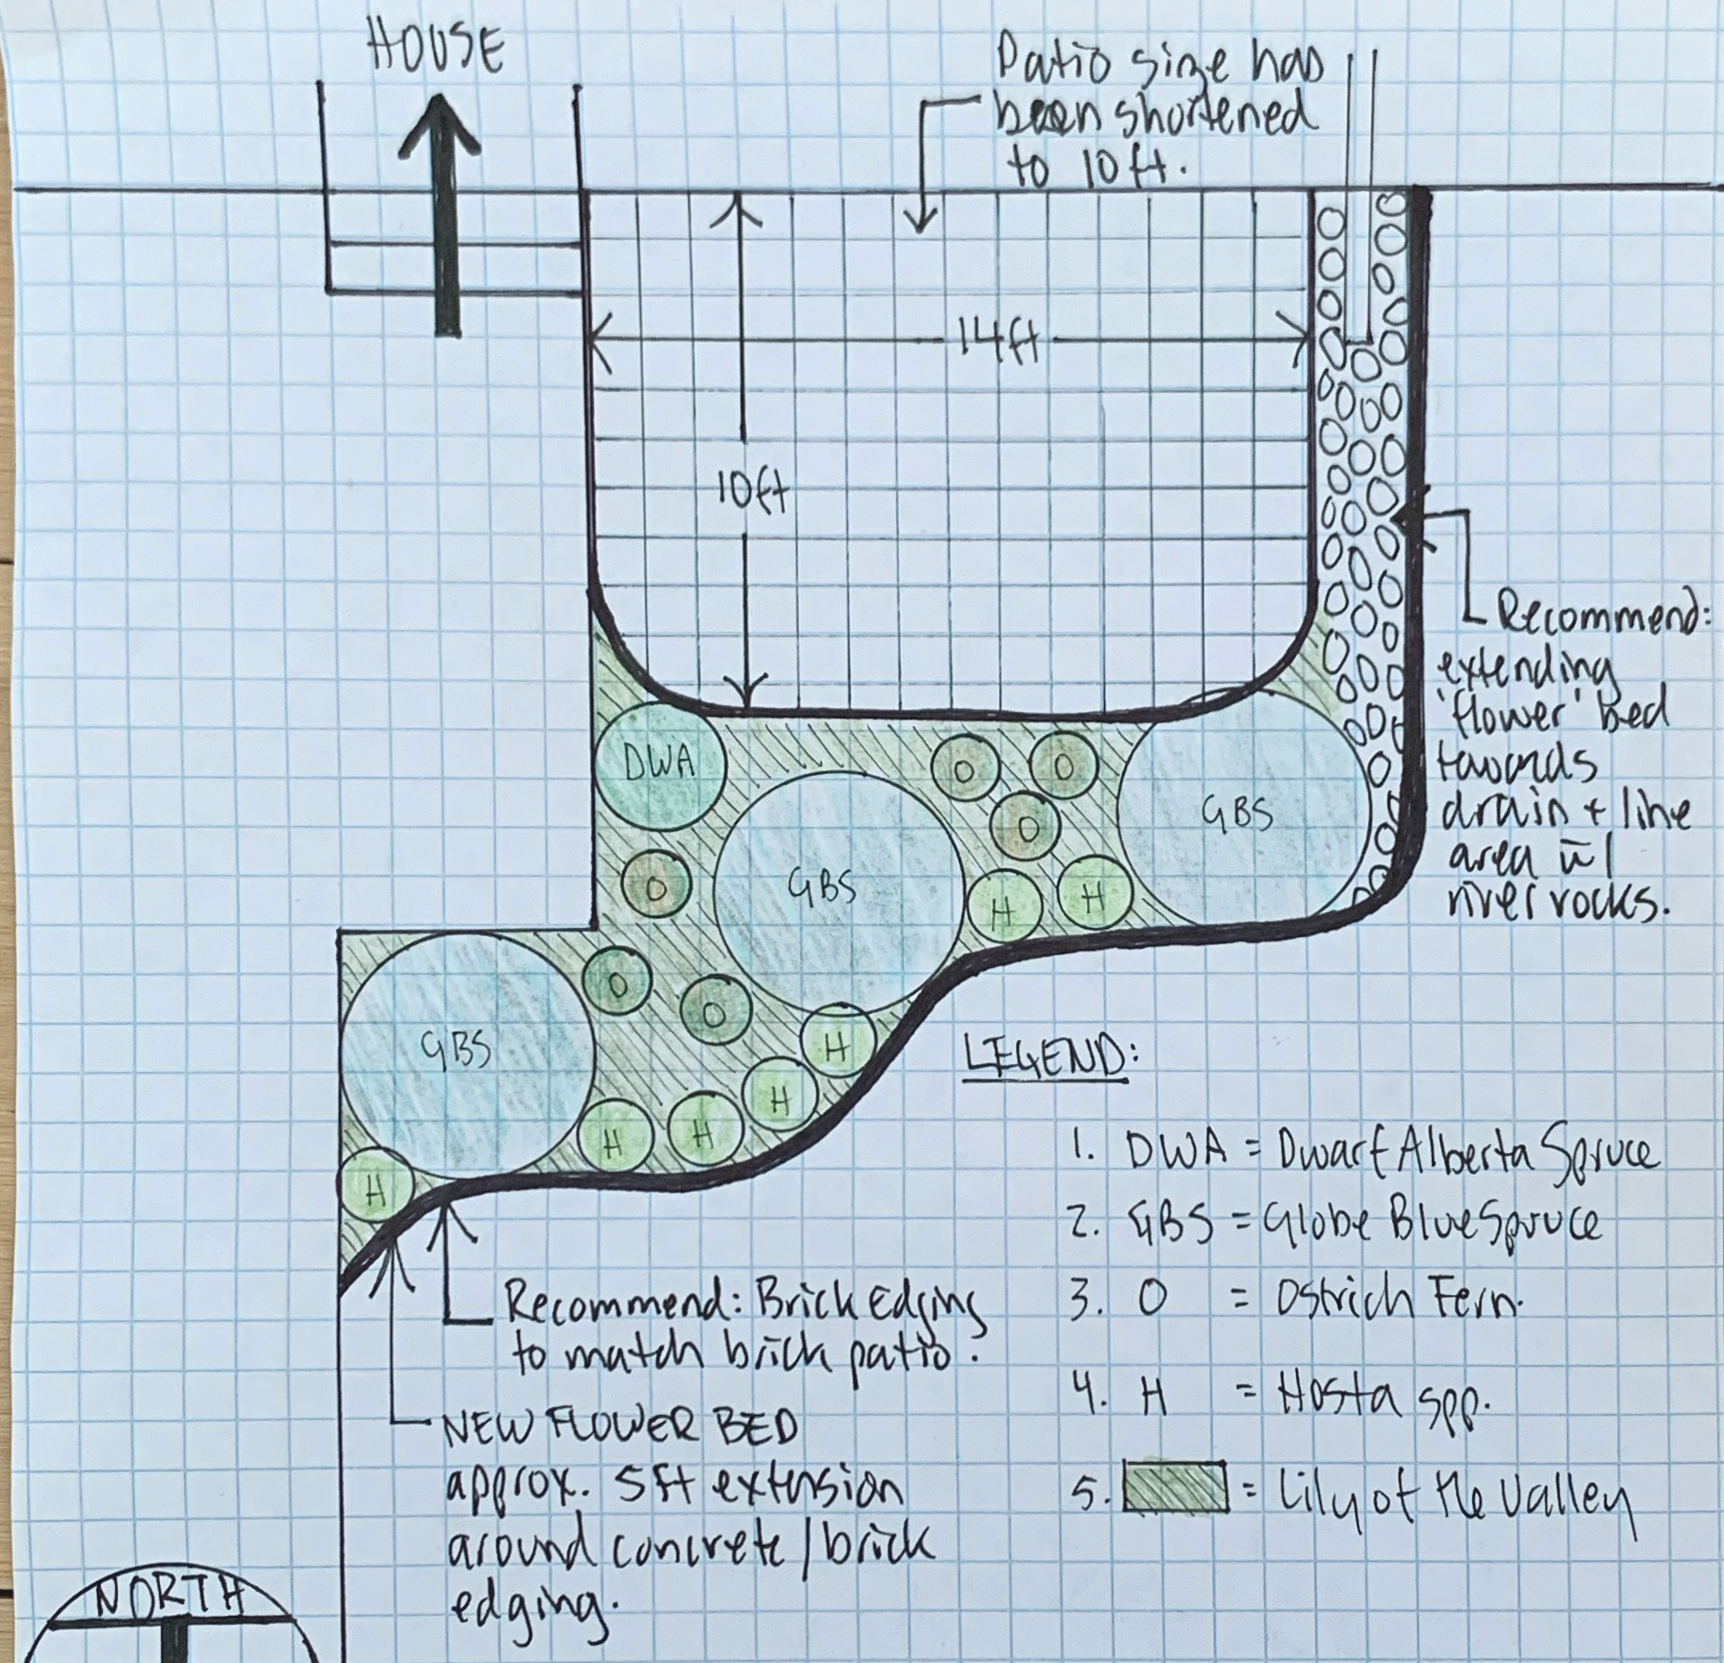 HOUSE
Patio size has
been shortened
to 10 ft.
14ft
10ft
Recommend:
extending
'flower' bed
towards
drain + line
area w/
river rocks.
DWA
O
O
GBS
O
GBS
O
H
H
GBS
O
O
H
H
H
H
H
LEGEND:
1. DWA = Dwarf Alberta Spruce
2. GBS = Globe Blue Spruce
3. O = Ostrich Fern.
4. H = Hosta spp.
5. = Lily of the Valley
Recommend: Brick Edging
to match brick patio.
NEW FLOWER BED
approx. 5ft extension
around concrete / brick
edging.
NORTH